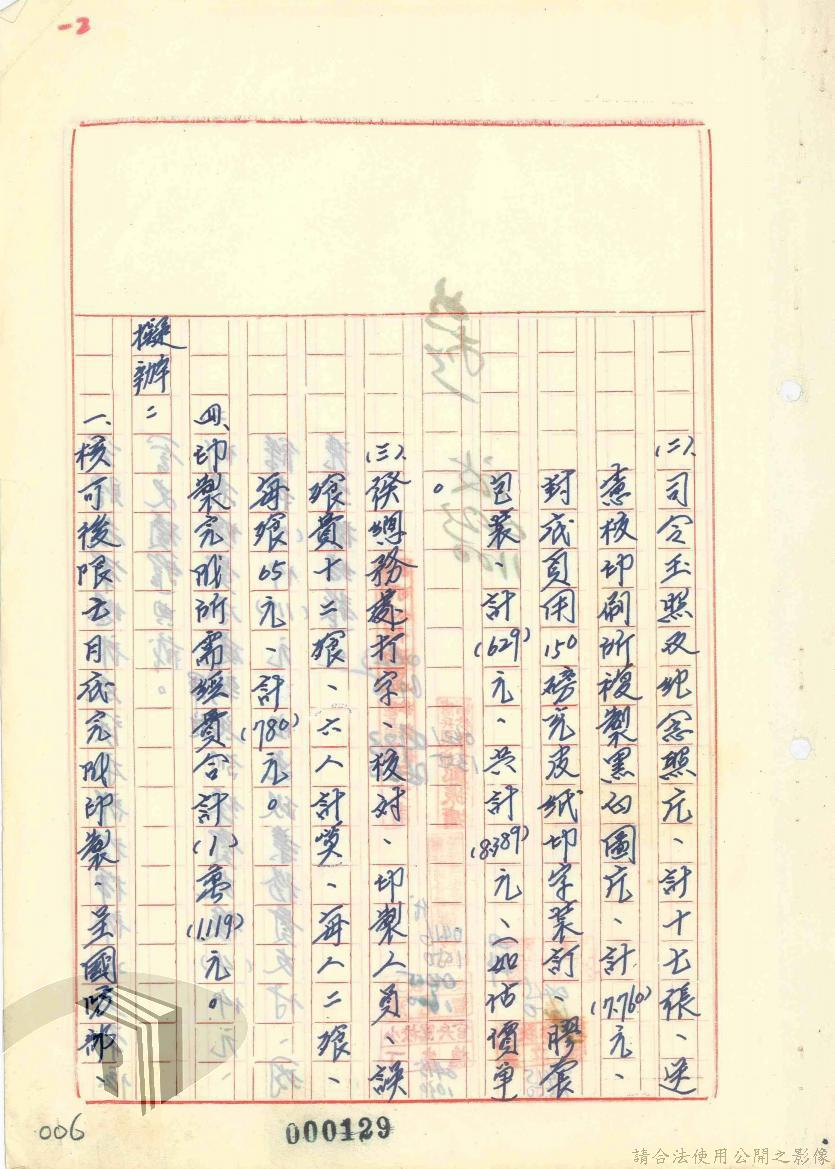 -2
(二)、司令玉照及紀念照片、計十七張、送
憲校印刷所複製黑白圖片、計(7,760)元、
封底頁用150磅元皮紙切字裝訂、膠裝
包裝、計(629)元、共計(8389)元、(如估價單
。
(三)、發總務處打字、核對、印製人員、誤
餐費十二餐、六人計算、每人二餐、
每餐65元、計(780)元。
四、印製完成所需經費合計(1)萬(1,119)元。
擬辦:
一、核可後限七月底完成印製、呈國防部、
006
000129
請合法使用公開之影像